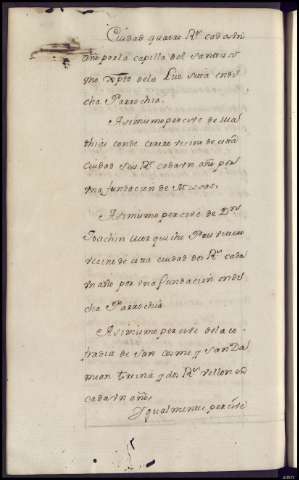 Ciudad quatro Rs. cada un
año por la capilla del Santissi
mo Xpto dela Luz sita en di
cha Parrochia.
Asimismo percive de Ma
thias conde vecino de esta
Ciudad seis Rs. cada un año por
una fundacion de Misas.
Asimismo percive de Dn.
Joachin
vecino de esta ciudad dos Rs. cada
un año por una fundacion en di
cha Parrochia
Asimismo percive dela co
fradia de San Cosme y San Da
mian treina y dos Rs. vellon en
cada un año.
Ygualmente percive